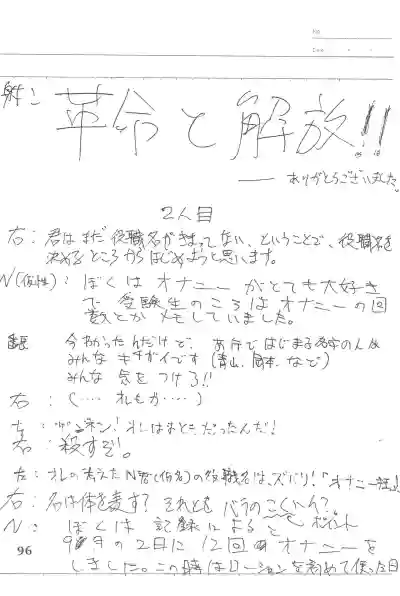 No.
Date
射:
革命と解放!!
— ありがとうございました。
2人目
右:君はまだ役職名がきまってない、ということで、役職名を
決めるところからはじめようと思います。
N(仮性):ぼくはオナニーがとても大好き
で受験生のころはオナニーの回
数とかメモしていました。
今わかったんだけど、あ行ではじまる名字の人は
みんなキチガイです(青山、岡本、など)
みんな気をつけろ!!
右:(‥‥れもか‥‥)
左:ザンネン!オレはまとこだったんだ!
右:殺すぞ!。
左:オレの考えたN君(仮名)の役職名は、ズバリ!「オナニー
右:名は体を表す?それとも バラの
N:ぼくは記録によると ポイント
9月の2日に12回のオナニーを
しました。この時はローションを初めて使った日
96